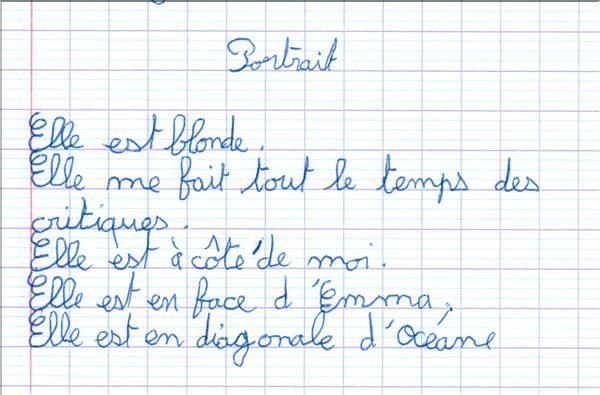 Portrait
Elle est blonde.
Elle me fait tout le temps des
critiques.
Elle est à côté de moi.
Elle est en face d'Emma.
Elle est en diagonale d'Océane